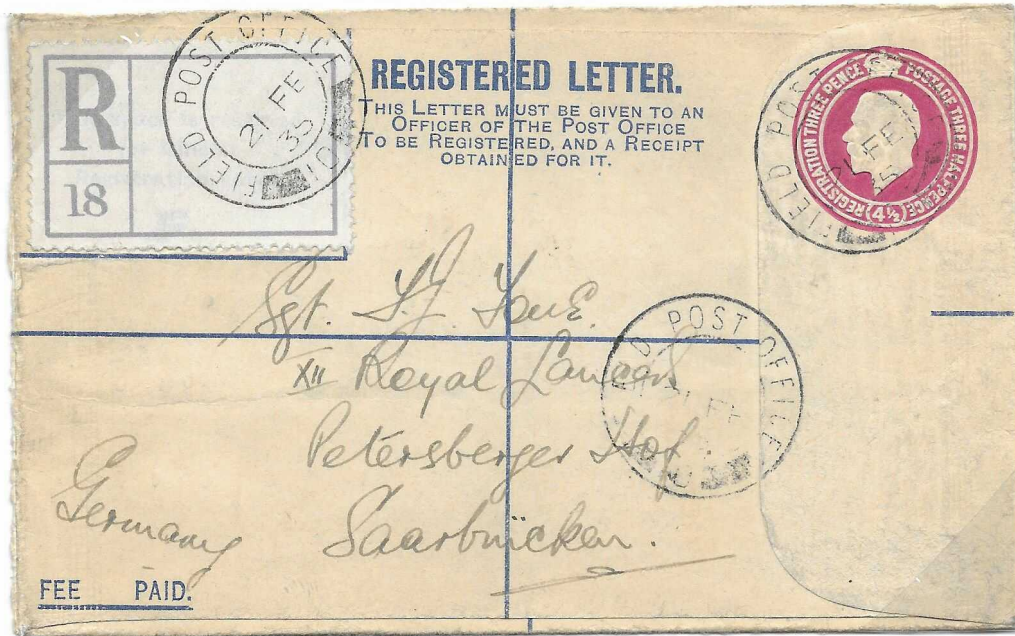 R
18
FIELD POST OFFICE
21 FE
35
REGISTERED LETTER.
THIS LETTER MUST BE GIVEN TO AN
OFFICER OF THE POST OFFICE
TO BE REGISTERED, AND A RECEIPT
OBTAINED FOR IT.
REGISTRATION THREE PENCE
POSTAGE THREE HALFPENCE
(4½)
FIELD POST
21 FE
35
Sgt. 
XII Royal Lancers
Petersberger Hof
Saarbrücken.
Germany
POST OFFICE
21 FE
FEE PAID.